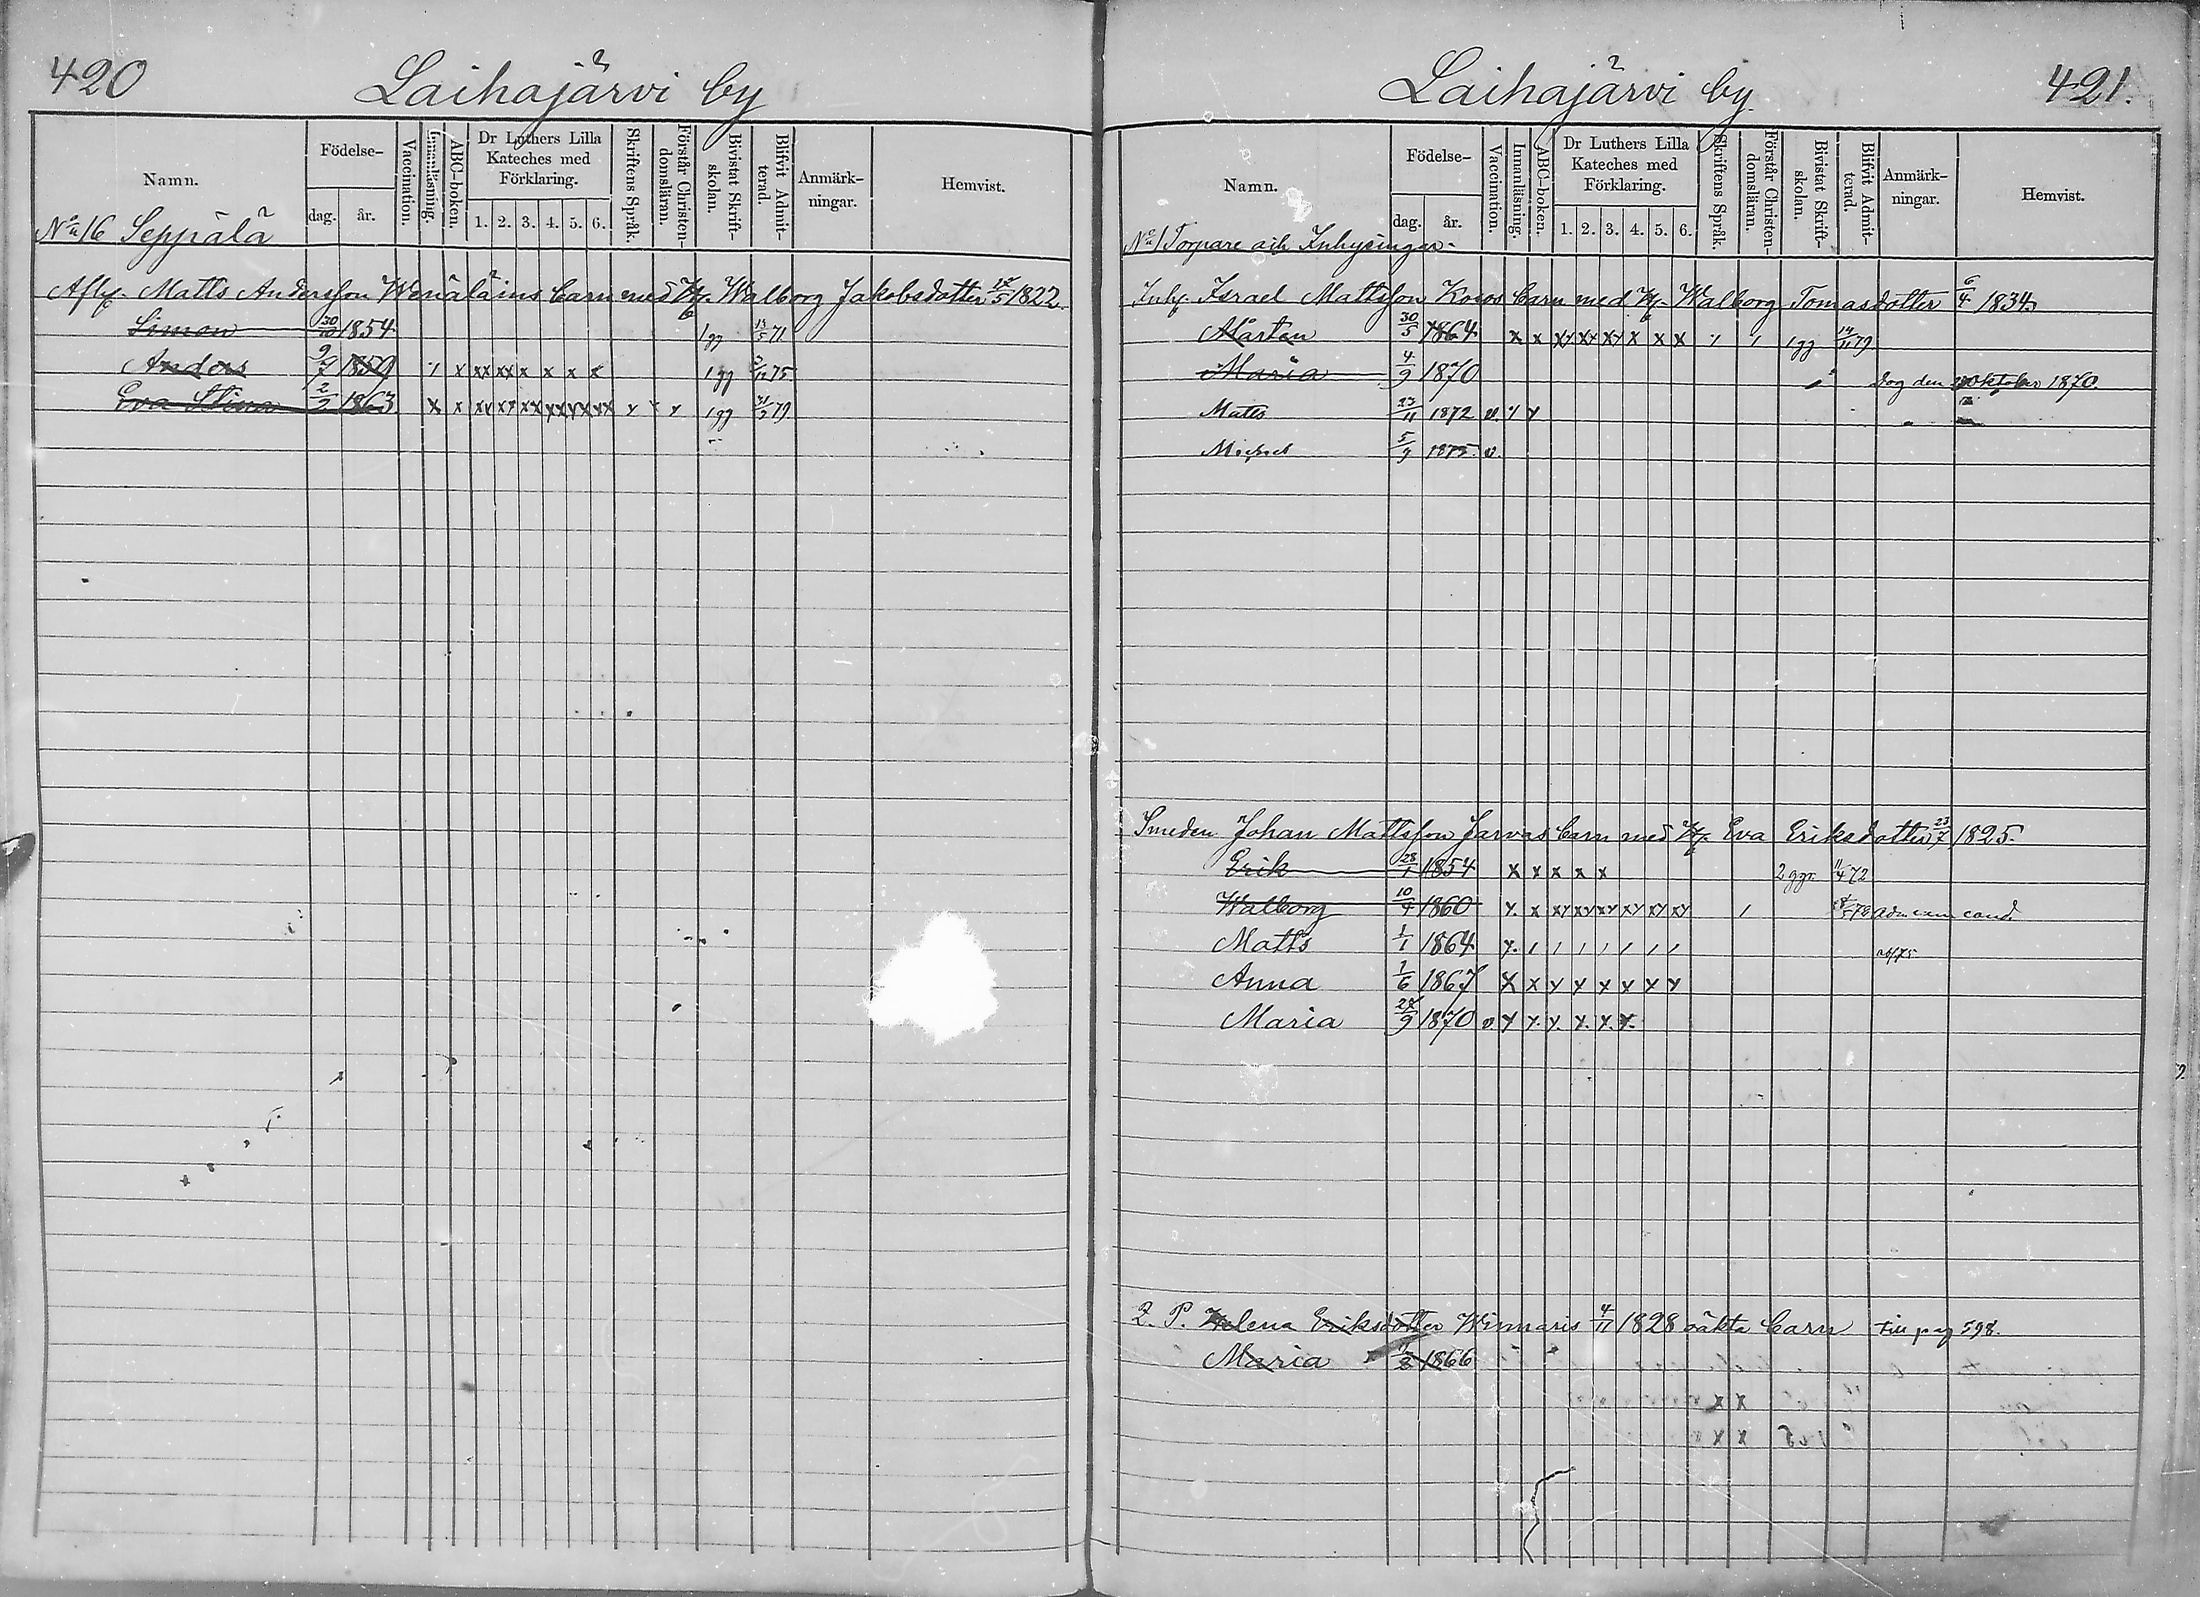 420
Laihajärvi by
Namn.
Födelse-
dag. år.
Vaccination.
Innanläsning.
ABC-boken.
Dr Luthers Lilla
Kateches med
Förklaring.
1. 2. 3. 4. 5. 6.
Skriftens Språk.
Förstår Christen-
domsläran.
Bivistat Skrift-
skolan.
Blifvit Admit-
terad.
Anmärk-
ningar.
Hemvist.
No 16 Seppälä
Matts Andersson barn med Walborg Jakobsdotter 1822
Simon 30/10 1854 1 gg 71
Anders 9/7 1859 x xx xx x x x 1 gg 75
Eva Stina 2/2 1863 x x xx xx xx xx xx xx 1 gg 79
Laihajärvi by
421.
Namn.
Födelse-
dag. år.
Vaccination.
Innanläsning.
ABC-boken.
Dr Luthers Lilla
Kateches med
Förklaring.
1. 2. 3. 4. 5. 6.
Skriftens Språk.
Förstår Christen-
domsläran.
Bivistat Skrift-
skolan.
Blifvit Admit-
terad.
Anmärk-
ningar.
Hemvist.
No 1 Torpare och Inhysingar
Inhy. Israel Mattsson barn med Walborg Tomasdotter 6/4 1834
Mårten 30/5 1864 x x xx xx xx x x x 1 gg 79
Maria 4/9 1870 dog den Oktober 1870
Matts 23/11 1872 v
Michel 5/9 1875 v.
Smeden Johan Mattsson Jarvas barn med Eva Eriksdotter 1825
Erik 28/1 1854 x x x x x 2 ggr 11/4 72
Walborg 10/4 1860 x xx xx xx xx xx xx 78 adm cum cond.
Matts 1/1 1864
Anna 1/6 1867 x x x x x x x x
Maria 28/9 1870 v
Q. P. Helena Eriksdotter 4/11 1828 oäkta barn till pag 598.
Maria 1866